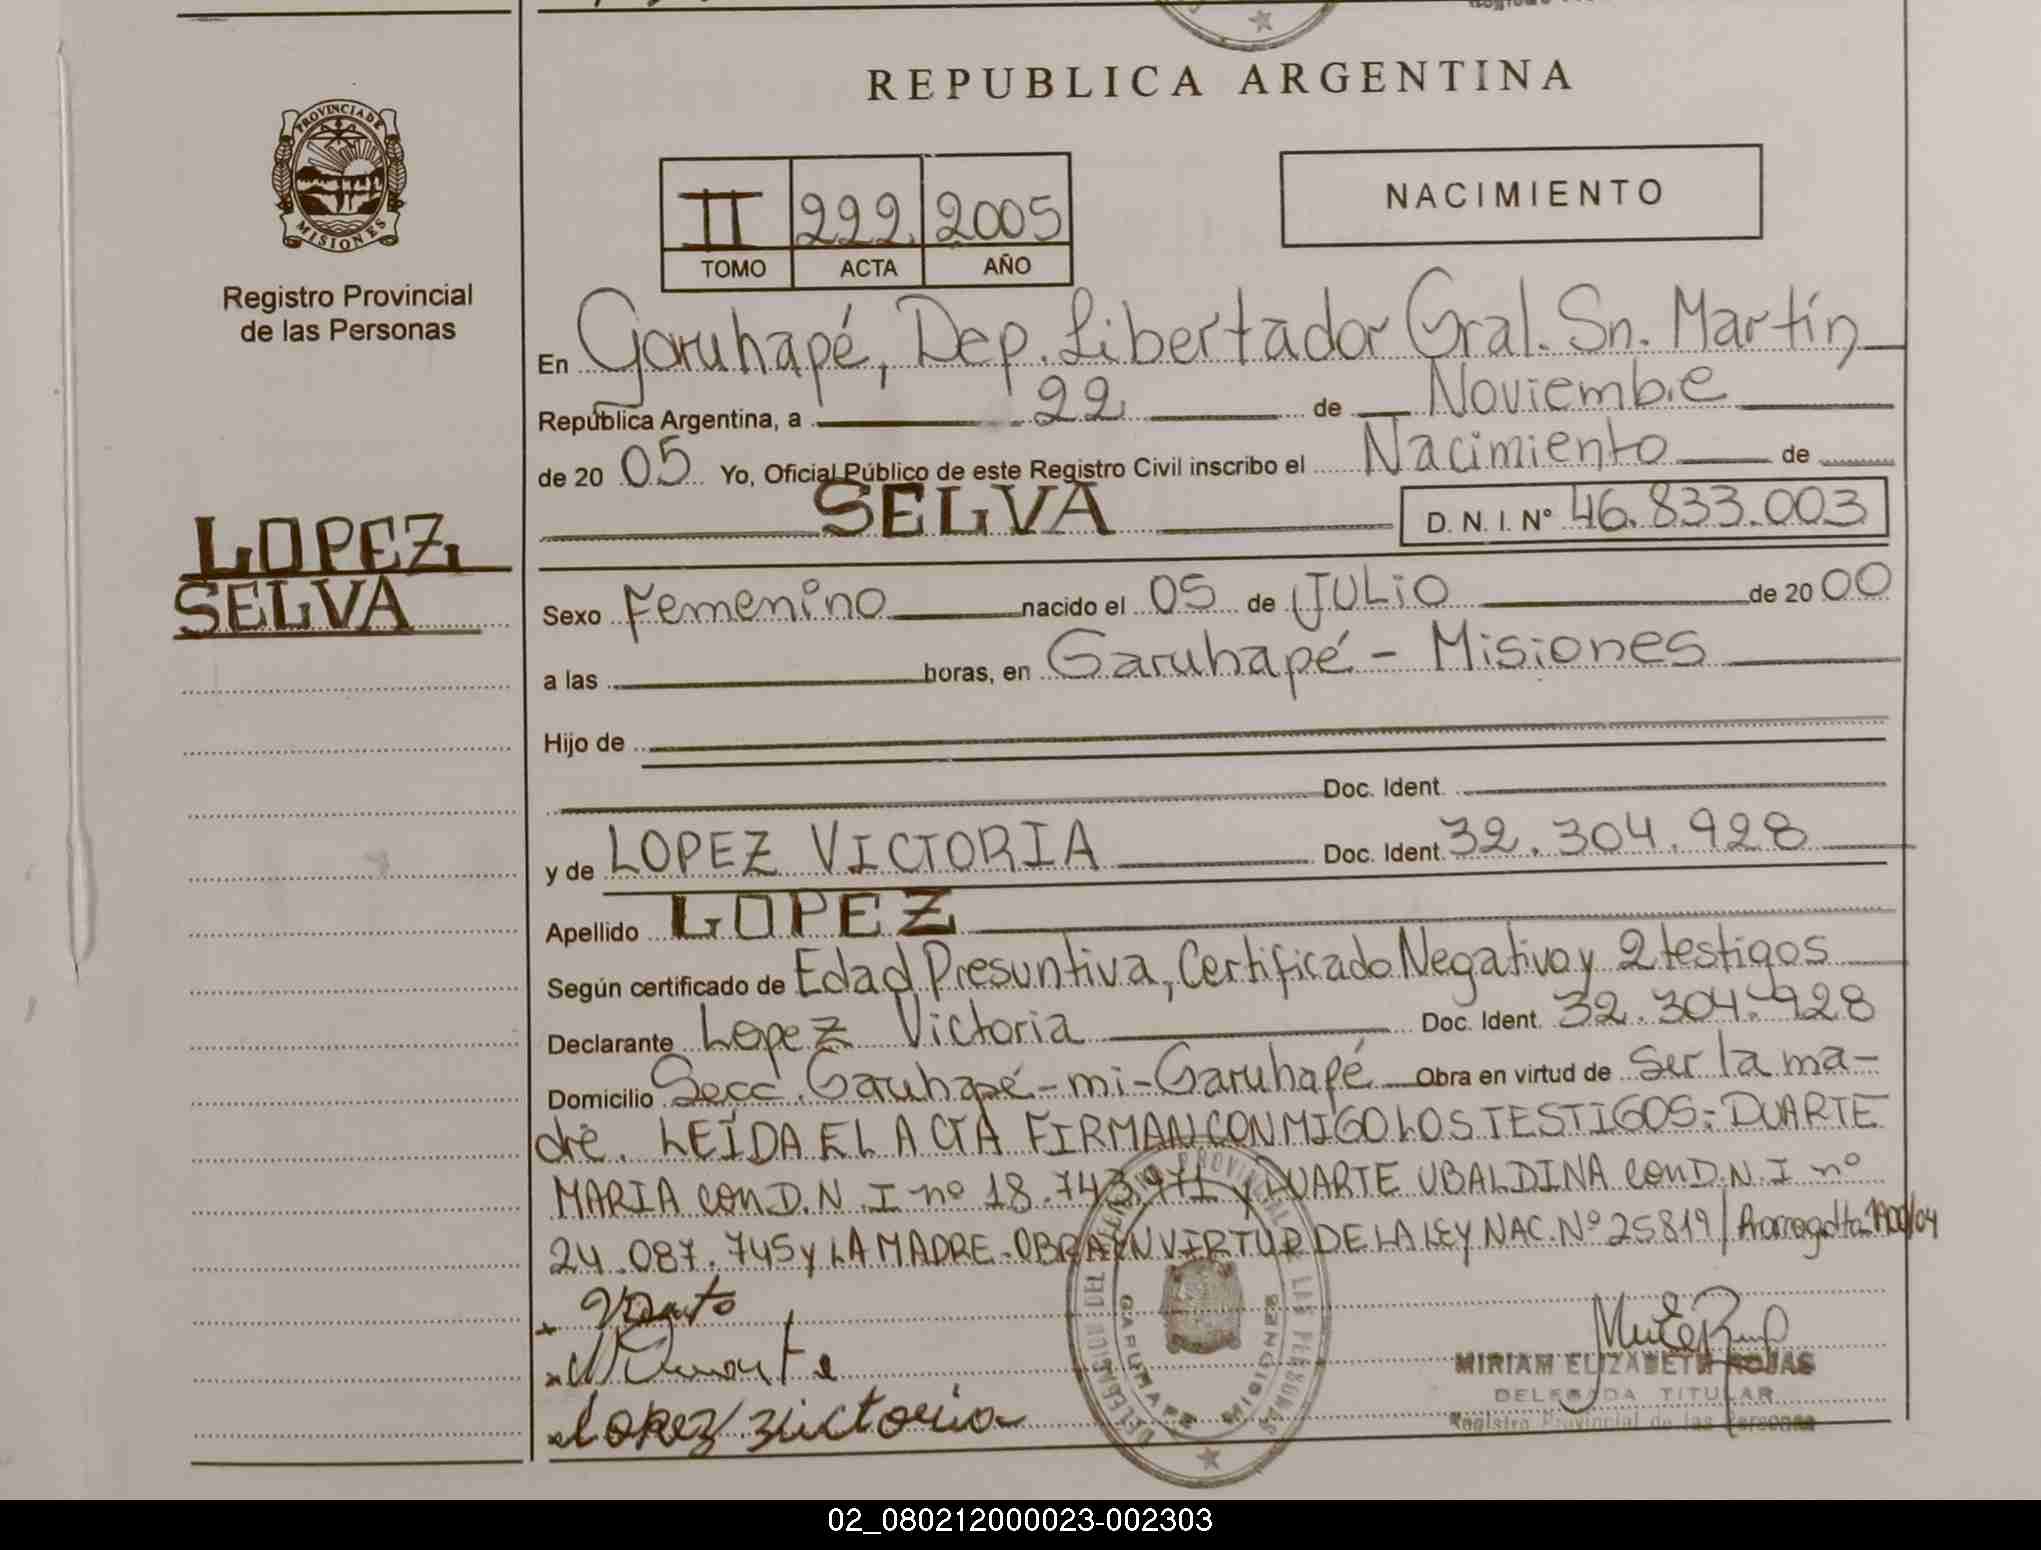 REPUBLICA ARGENTINA
PROVINCIA DE MISIONES
Registro Provincial
de las Personas
II 222 2005
TOMO ACTA AÑO
NACIMIENTO
LOPEZ
SELVA
En Garuhapé, Dep. Libertador Gral. Sn. Martín
República Argentina, a 22 de Noviembre
de 20 05 Yo, Oficial Público de este Registro Civil inscribo el Nacimiento de
SELVA D. N. I. Nº 46.833.003
Sexo Femenino nacido el 05 de JULIO de 20 00
a las horas, en Garuhapé - Misiones
Hijo de
Doc. Ident.
y de LOPEZ VICTORIA Doc. Ident. 32.304.928
Apellido LOPEZ
Según certificado de Edad Presuntiva, Certificado Negativo y 2 testigos
Declarante Lopez Victoria Doc. Ident. 32.304.928
Domicilio Secc. Garuhapé-mi-Garuhapé Obra en virtud de ser la ma-
dre. LEÍDA EL ACTA FIRMAN CONMIGO LOS TESTIGOS: DUARTE
MARIA CON D.N.I nº 18.743.971 y DUARTE UBALDINA CON D.N.I nº
24.087.745 y LA MADRE. OBRA EN VIRTUD DE LA LEY NAC. Nº 25819/
Lopez Victoria
MIRIAM ELIZABETH ROJAS
DELEGADA TITULAR
Registro Provincial de las Personas
DELEGACION DEL REGISTRO PROVINCIAL DE LAS PERSONAS
GARUHAPE MISIONES
02_080212000023-002303